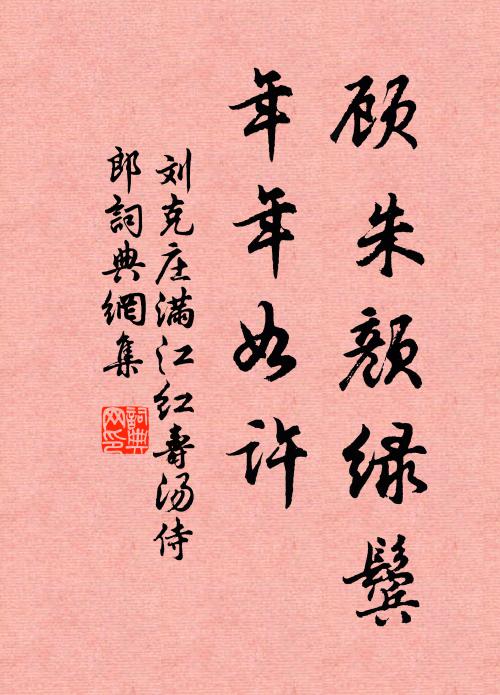 顾朱颜绿鬓
年年如许
刘克庄满江红寿汤侍
郎詞典網集
詞典
网印